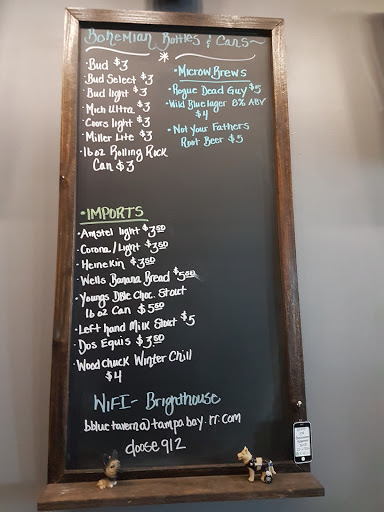 Bohemian Bottles & Cans
• Bud $3
Bud Select $3
• Bud light $3
• Mich Ultra $3
• Coors light $3
• Miller Lite $3
• 16 oz Rolling Rock
Can $3
• MICROW BREWS
• Rogue Dead Guy $5
• Wild Blue lager 8% ABV
$4
• Not Your Fathers
Root Beer $5
• IMPORTS
• Amstel light $3.50
• Corona/Light $3.50
• Heineken $3.50
• Wells Banana Bread $5.00
• Youngs Dble Choc. Stout
16 oz Can $5.50
• Left hand Milk Stout $5
• Dos Equis $3.50
• Wood Chuck Winter Chill
$4
WIFI - Brighthouse
bbluetavern@tampabay.rr.com
doose912